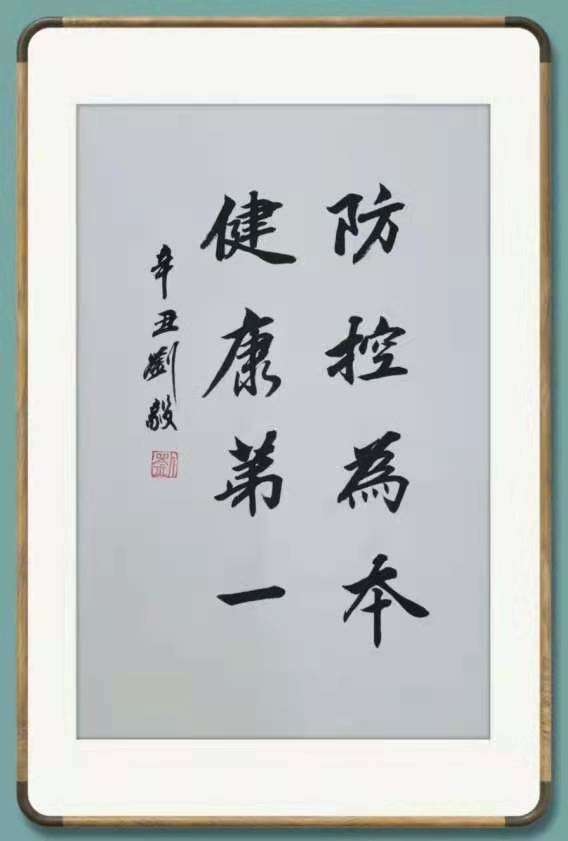 防控為本
健康第一
辛丑劉毅
劉